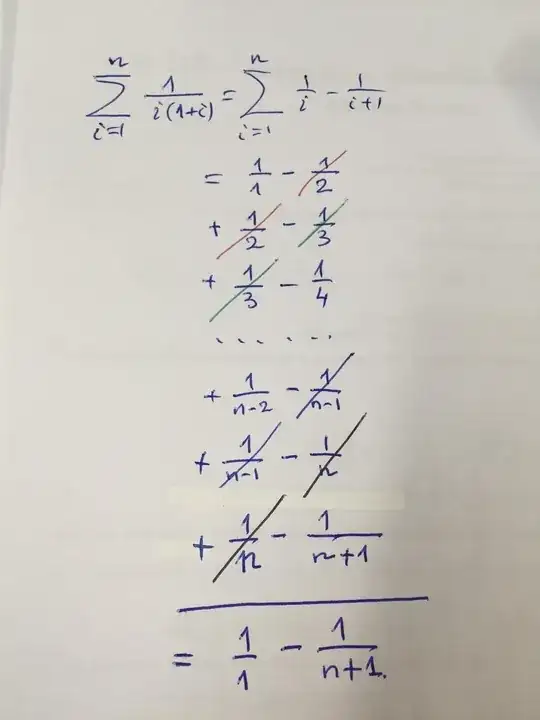 n n
∑ 1/i(1+i) = ∑ 1/i − 1/i+1
i=1 i=1
= 1/1 − 1/2
+ 1/2 − 1/3
+ 1/3 − 1/4
. . . . . . .
+ 1/n−2 − 1/n−1
+ 1/n−1 − 1/n
+ 1/n − 1/n+1
= 1/1 − 1/n+1.